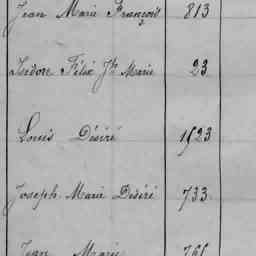 Jean Marie François 813
Isidore Félix Jh Marie 23
Louis Désiré 1523
Joseph Marie Désiré 733
Jean Marie